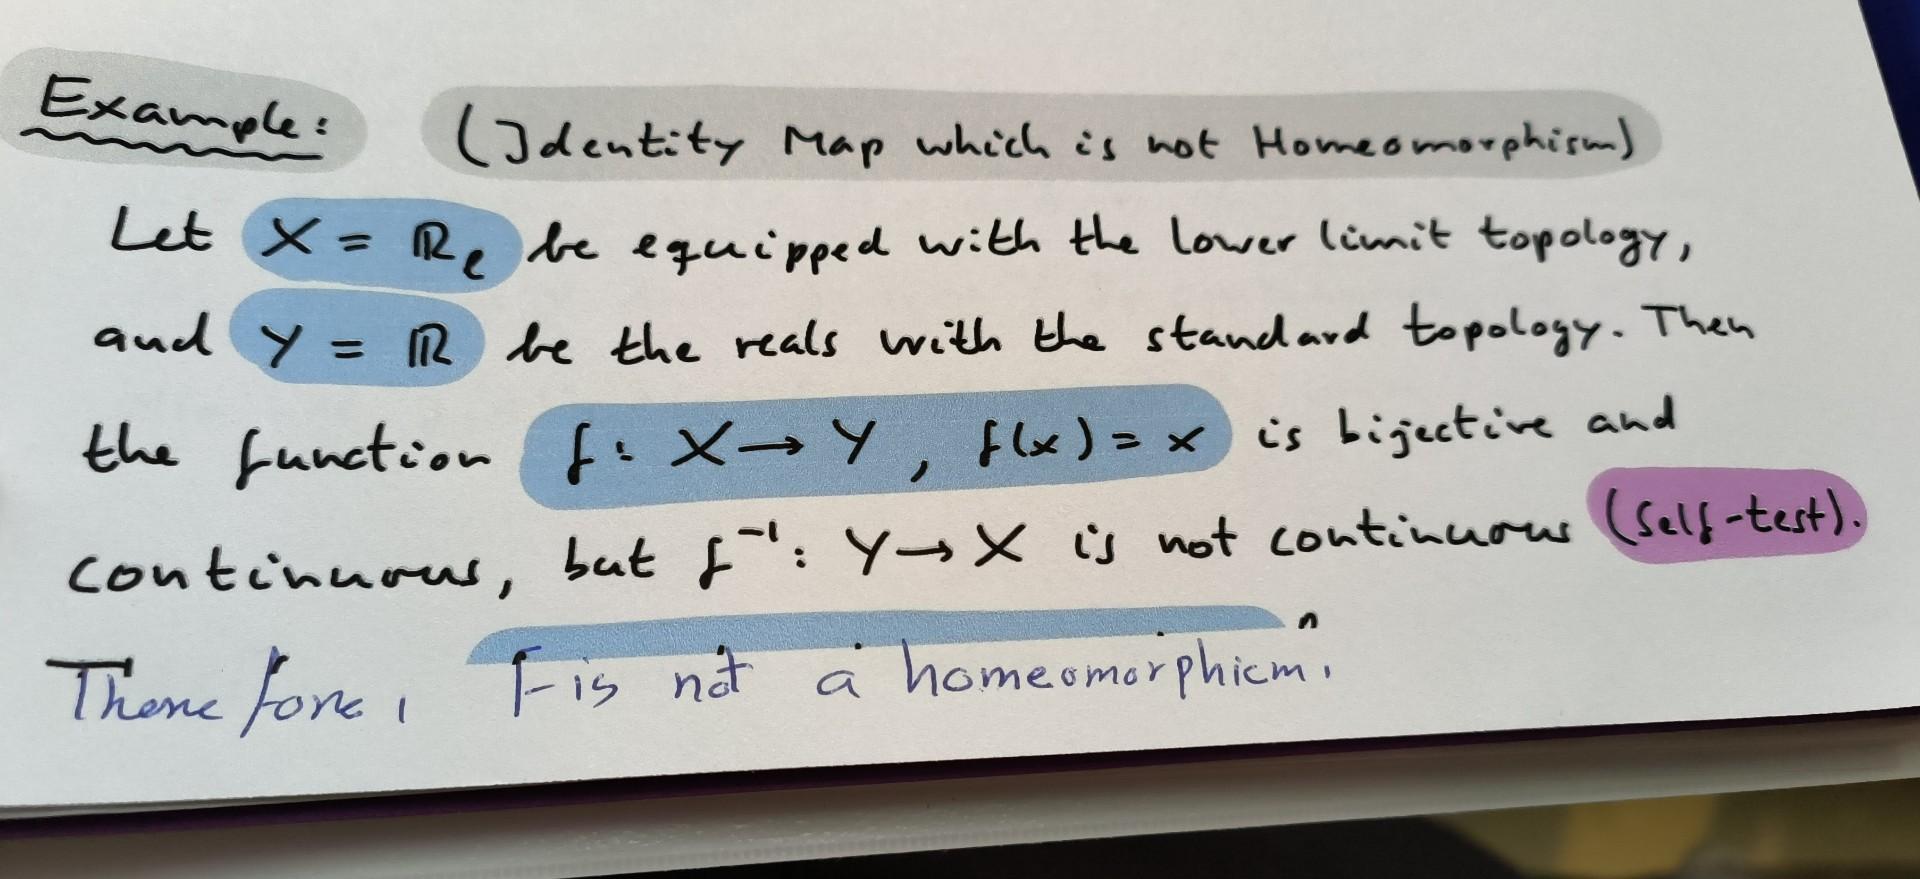 Example: (Identity Map which is not Homeomorphism)
Let X = ℝₗ be equipped with the lower limit topology,
and Y = ℝ be the reals with the standard topology. Then
the function f: X → Y, f(x) = x is bijective and
continuous, but f⁻¹: Y → X is not continuous (Self-test).
Therefore, f is not a homeomorphism.